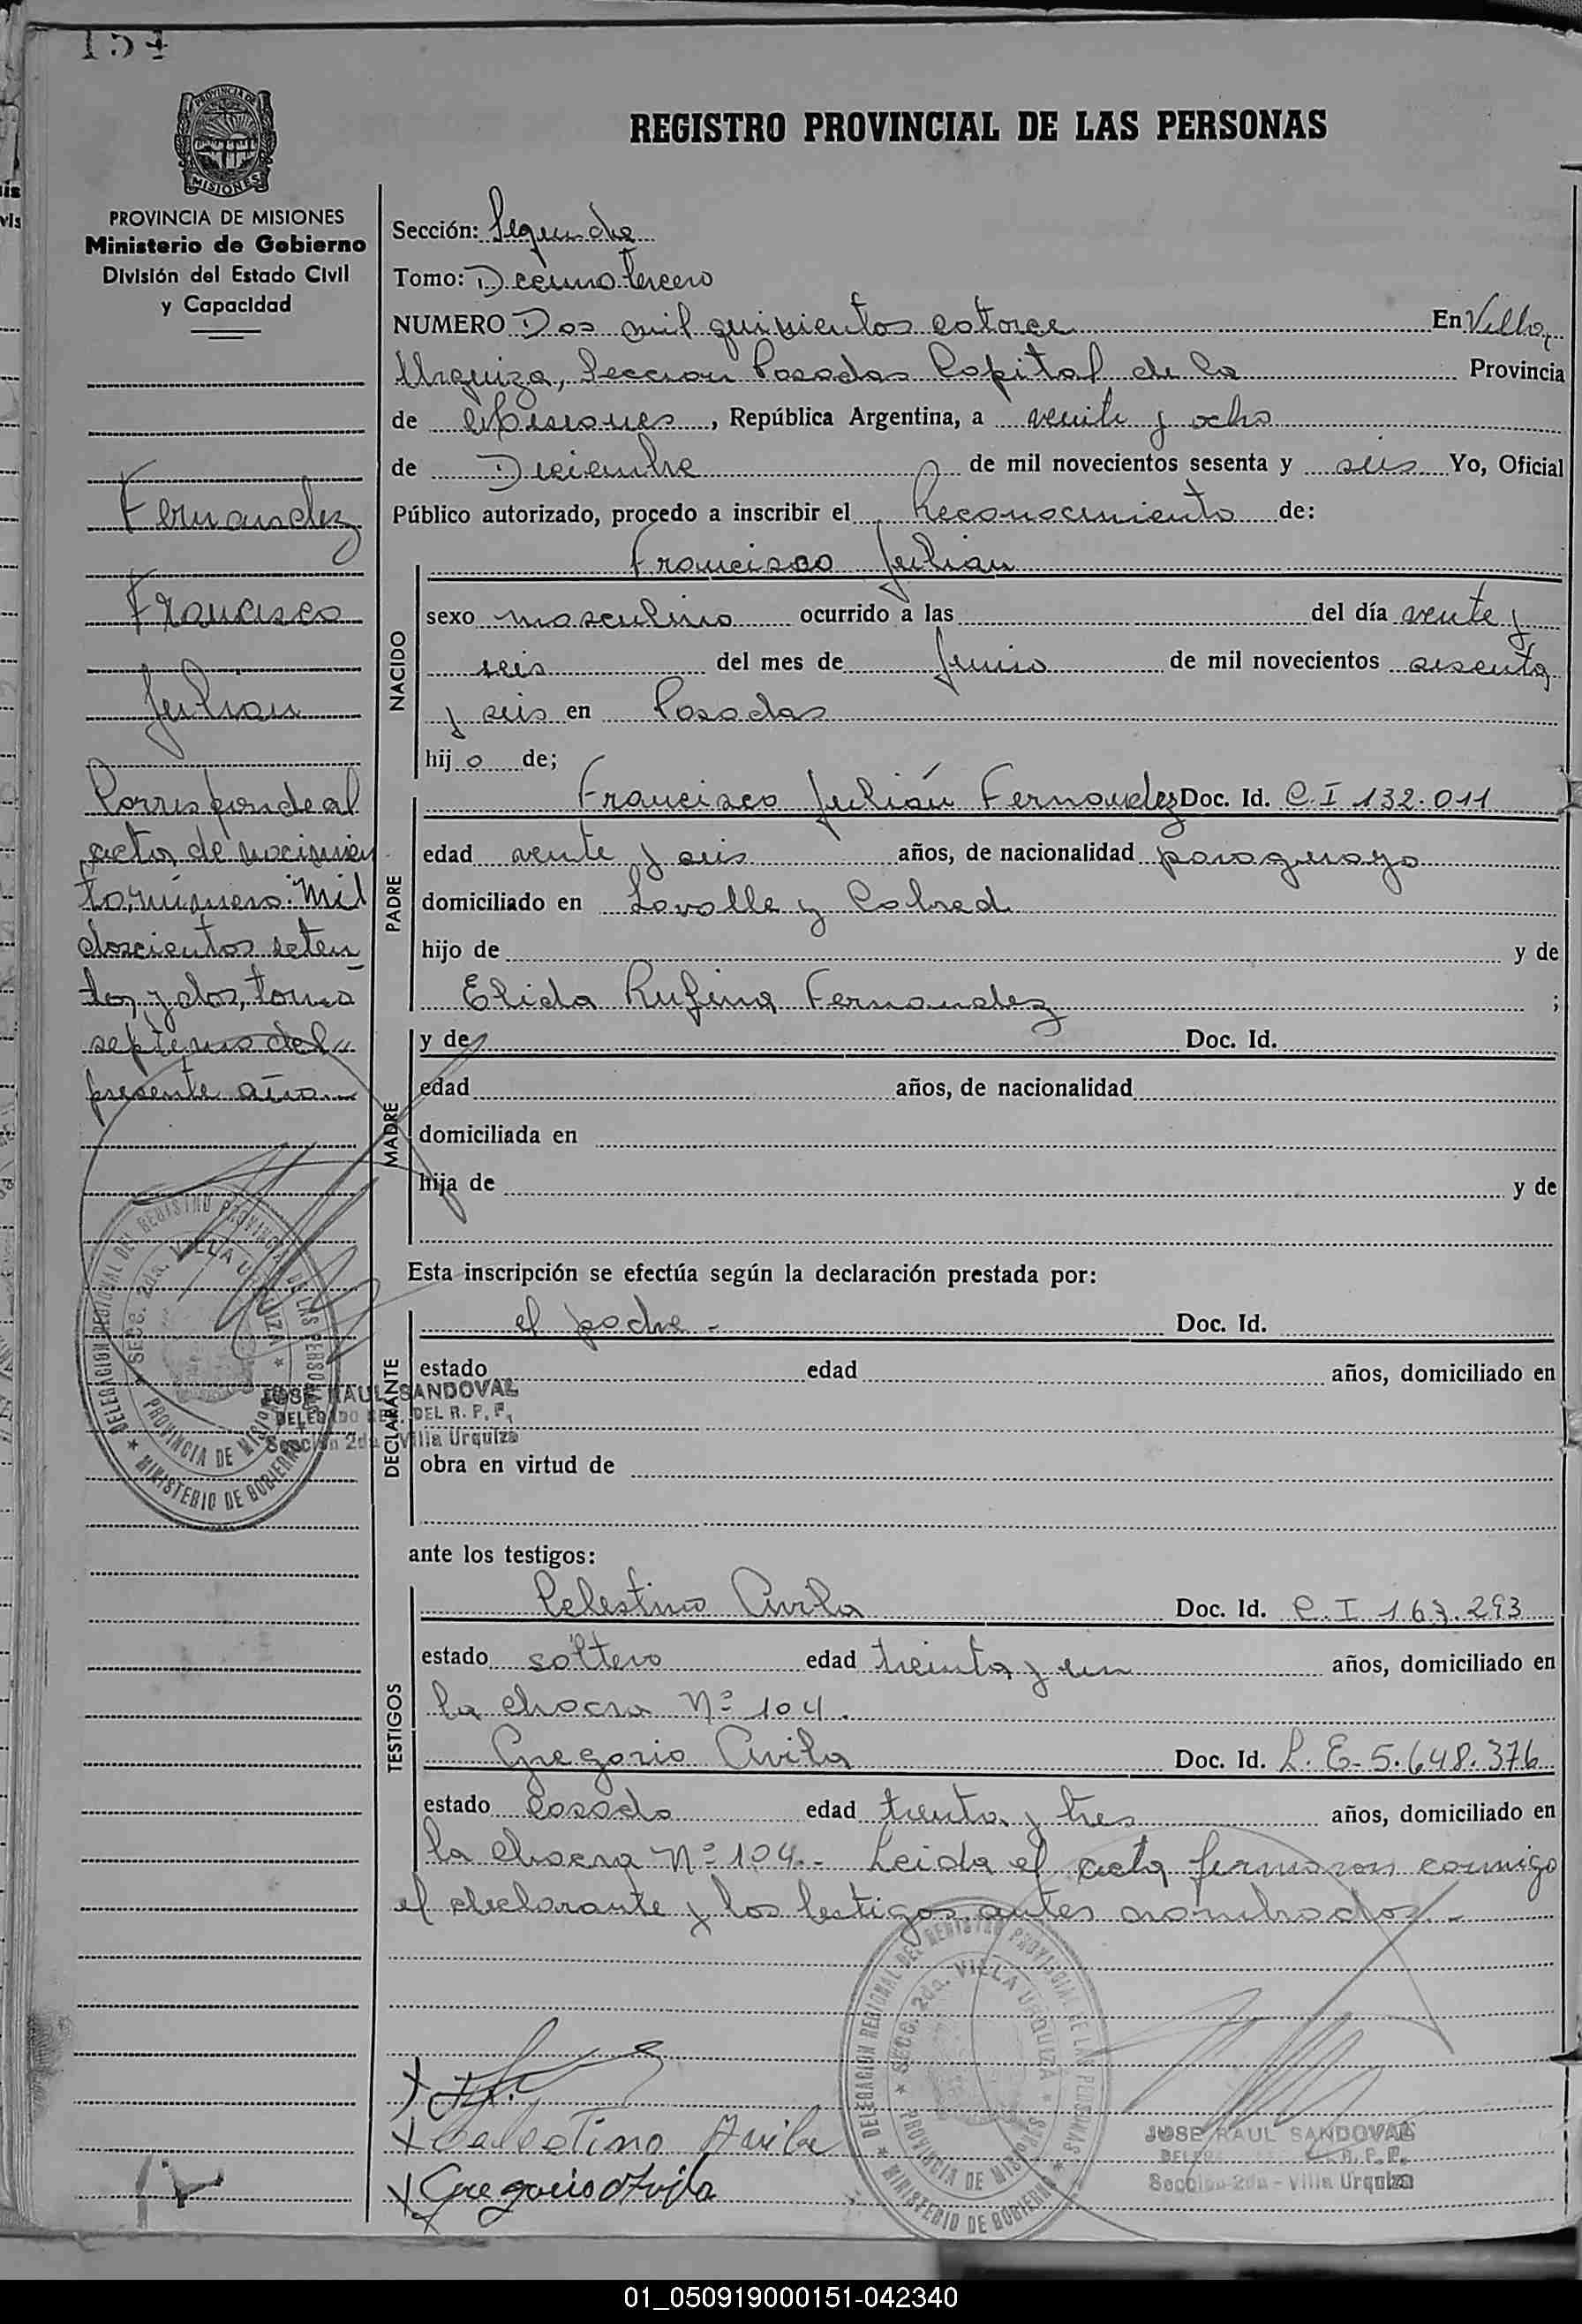 154
PROVINCIA DE
MISIONES
PROVINCIA DE MISIONES
Ministerio de Gobierno
División del Estado Civil
y Capacidad
Fernandez
Francisco
Julian
Corresponde al
acta de nacimien
to, número: Mil
doscientos seten
ta y dos, tomo
septimo del "
presente año.—
DELEGACION REGIONAL DEL REGISTRO PROVINCIAL DE LAS PERSONAS
SECC. 2da. VILLA URQUIZA
PROVINCIA DE MISIONES
MINISTERIO DE GOBIERNO
JOSE RAUL SANDOVAL
DELEGADO REG. DEL R. P. P.
Sección 2da - Villa Urquiza
REGISTRO PROVINCIAL DE LAS PERSONAS
Sección: Segunda
Tomo: Decimo tercero
NUMERO Dos mil quinientos catorce En Villa
Urquiza, Seccion Posadas Capital de la Provincia
de Misiones, República Argentina, a veinte y ocho
de Diciembre de mil novecientos sesenta y seis Yo, Oficial
Público autorizado, procedo a inscribir el Reconocimiento de:
NACIDO
Francisco Julian
sexo masculino ocurrido a las del día veinte y
seis del mes de Junio de mil novecientos sesenta
y seis en Posadas
hijo de;
PADRE
Francisco Julián Fernandez Doc. Id. C.I 132.011
edad veinte y seis años, de nacionalidad paraguayo
domiciliado en Lavalle y Cabred
hijo de y de
Elida Rufina Fernandez ;
MADRE
y de Doc. Id.
edad años, de nacionalidad
domiciliada en
hija de y de
Esta inscripción se efectúa según la declaración prestada por:
DECLARANTE
el padre - Doc. Id.
estado edad años, domiciliado en
obra en virtud de
ante los testigos:
TESTIGOS
Celestino Avila Doc. Id. C.I 163.293
estado soltero edad treinta y un años, domiciliado en
la chacra Nº 104.
Gregorio Avila Doc. Id. L.E-5.648.376
estado casado edad treinta y tres años, domiciliado en
la chacra Nº 104.- Leida el acta firmaron conmigo
el declarante y los testigos antes nombrados.-
DELEGACION REGIONAL DEL REGISTRO PROVINCIAL DE LAS PERSONAS
SECC. 2da. VILLA URQUIZA
PROVINCIA DE MISIONES
MINISTERIO DE GOBIERNO
Celestino Avila
Gregorio Avila
JOSE RAUL SANDOVAL
R. P. P.
Sección 2da - Villa Urquiza
01_050919000151-042340